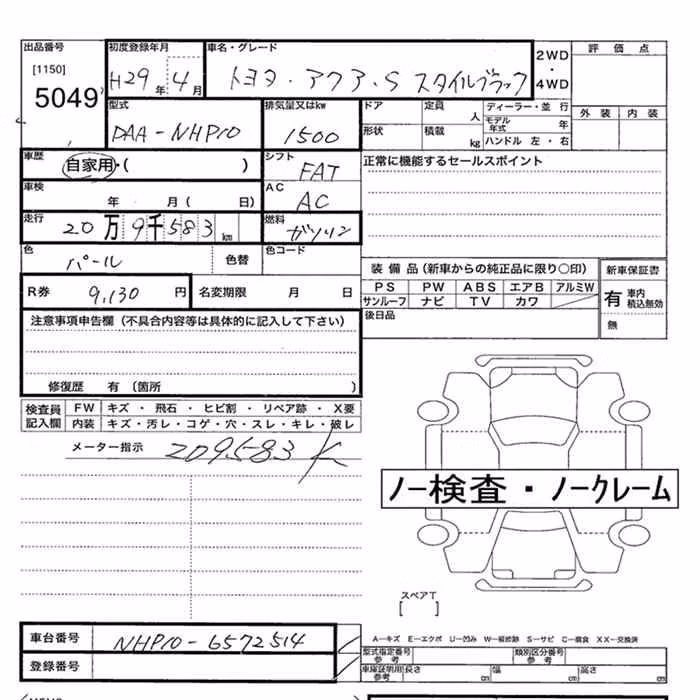 出品番号 初度登録年月 車名・グレード 2WD・4WD 評価点
[1150] 5049 H29年4月 トヨタ・アクア・S スタイルブラック
型式 排気量又はkw ドア 定員 人 ディーラー・並行 外装 内装
DAA-NHP10 1500 モデル年式 年
形状 積載 kg ハンドル 左・右
車歴 自家用・( ) シフト FAT 正常に機能するセールスポイント
車検 年 月( 日) AC AC
走行 20万9千583km 燃料 ガソリン
色 パール 色替 色コード
装備品(新車からの純正品に限り○印) 新車保証書
R券 9,130円 名変期限 月 日 PS PW ABS エアB アルミW 有 車内積込無効
サンルーフ ナビ TV カワ
注意事項申告欄(不具合内容等は具体的に記入して下さい) 後日品 無
修復歴 有(箇所 )
検査員記入欄 FW キズ・飛石・ヒビ割・リペア跡・X要
内装 キズ・汚レ・コゲ・穴・スレ・キレ・破レ
メーター指示 209583K
ノー検査・ノークレーム
スペアT
[ ]
車台番号 NHP10-6572514 A-キズ E-エクボ U-凹み W-補修跡 S-サビ C-腐食 XX-交換済
型式指定番号 参考 類別区分番号 参考
登録番号 車庫証明用参考 長さ cm 幅 cm 高さ cm